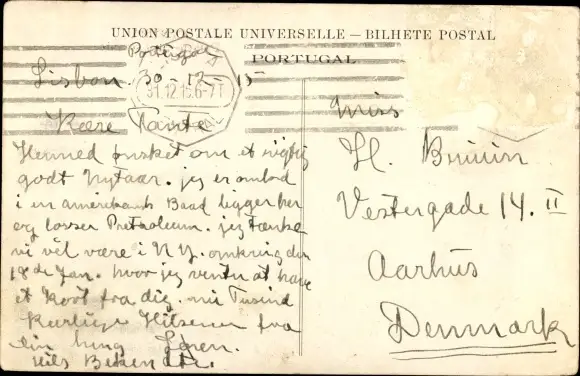 UNION POSTALE UNIVERSELLE — BILHETE POSTAL
PORTUGAL
Portugal
Lisbon 30-12-15
31.12.15.6-7T
Kære Tante
Hermed ønsket om et rigtig
godt Nytaar. jeg er ombord
i en amerikansk Baad ligger her
og losser Pretroleum. jeg tænke
vi vel være i N.Y. omkring den
18de Jan. hvor jeg venter at have
et Kort fra dig. nu Tusind
Kærlige Hilsener fra
din hung Søren.
Hils Bekendte.
Miss
H. Bruun
Vestergade 14. II
Aarhus
Denmark